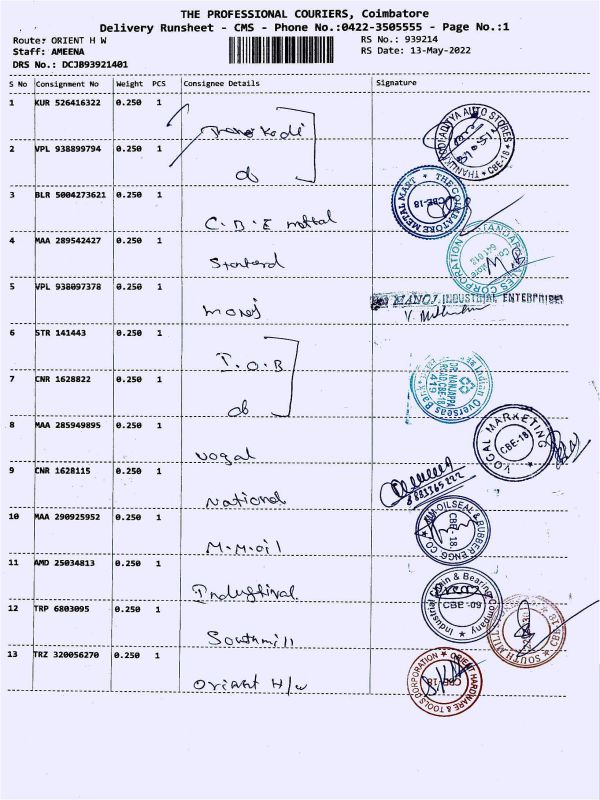 THE PROFESSIONAL COURIERS, Coimbatore
Delivery Runsheet - CMS - Phone No.:0422-3505555 - Page No.:1
Route: ORIENT H W
RS No.: 939214
Staff: AMEENA
RS Date: 13-May-2022
DRS No.: DCJB93921401
S No Consignment No Weight PCS Consignee Details Signature
1 KUR 526416322 0.250 1
THANUKKODI ADITYA AUTO STORES CBE-18
2 VPL 938899794 0.250 1
do
3 BLR 5004273621 0.250 1 C.B.E metal
THE COIMBATORE METAL MART CBE-18
4 MAA 289542427 0.250 1
STANDARD SALES CORPORATION
5 VPL 938097378 0.250 1 manoj
MANOJ INDUSTRIAL ENTERPRISES
6 STR 141443 0.250 1 I.O.B
7 CNR 1628822 0.250 1 do
Indian Overseas Bank
DR. NANJAPPA ROAD, CBE-18
1419
8 MAA 285949895 0.250 1 vogal
VOGAL MARKETING CBE-18
9 CNR 1628115 0.250 1 national
10 MAA 290925952 0.250 1 M.M.oil
OILSEAL & RUBBER ENGG CO CBE-18
11 AMD 25034813 0.250 1 Industrival
Industrial Chain & Bearing Company CBE-09
12 TRP 6803095 0.250 1 Southmill
SOUTH MILL
13 TRZ 320056270 0.250 1 Oriant H/w
ORIENT HARDWARE & TOOLS CORPORATION CBE-18